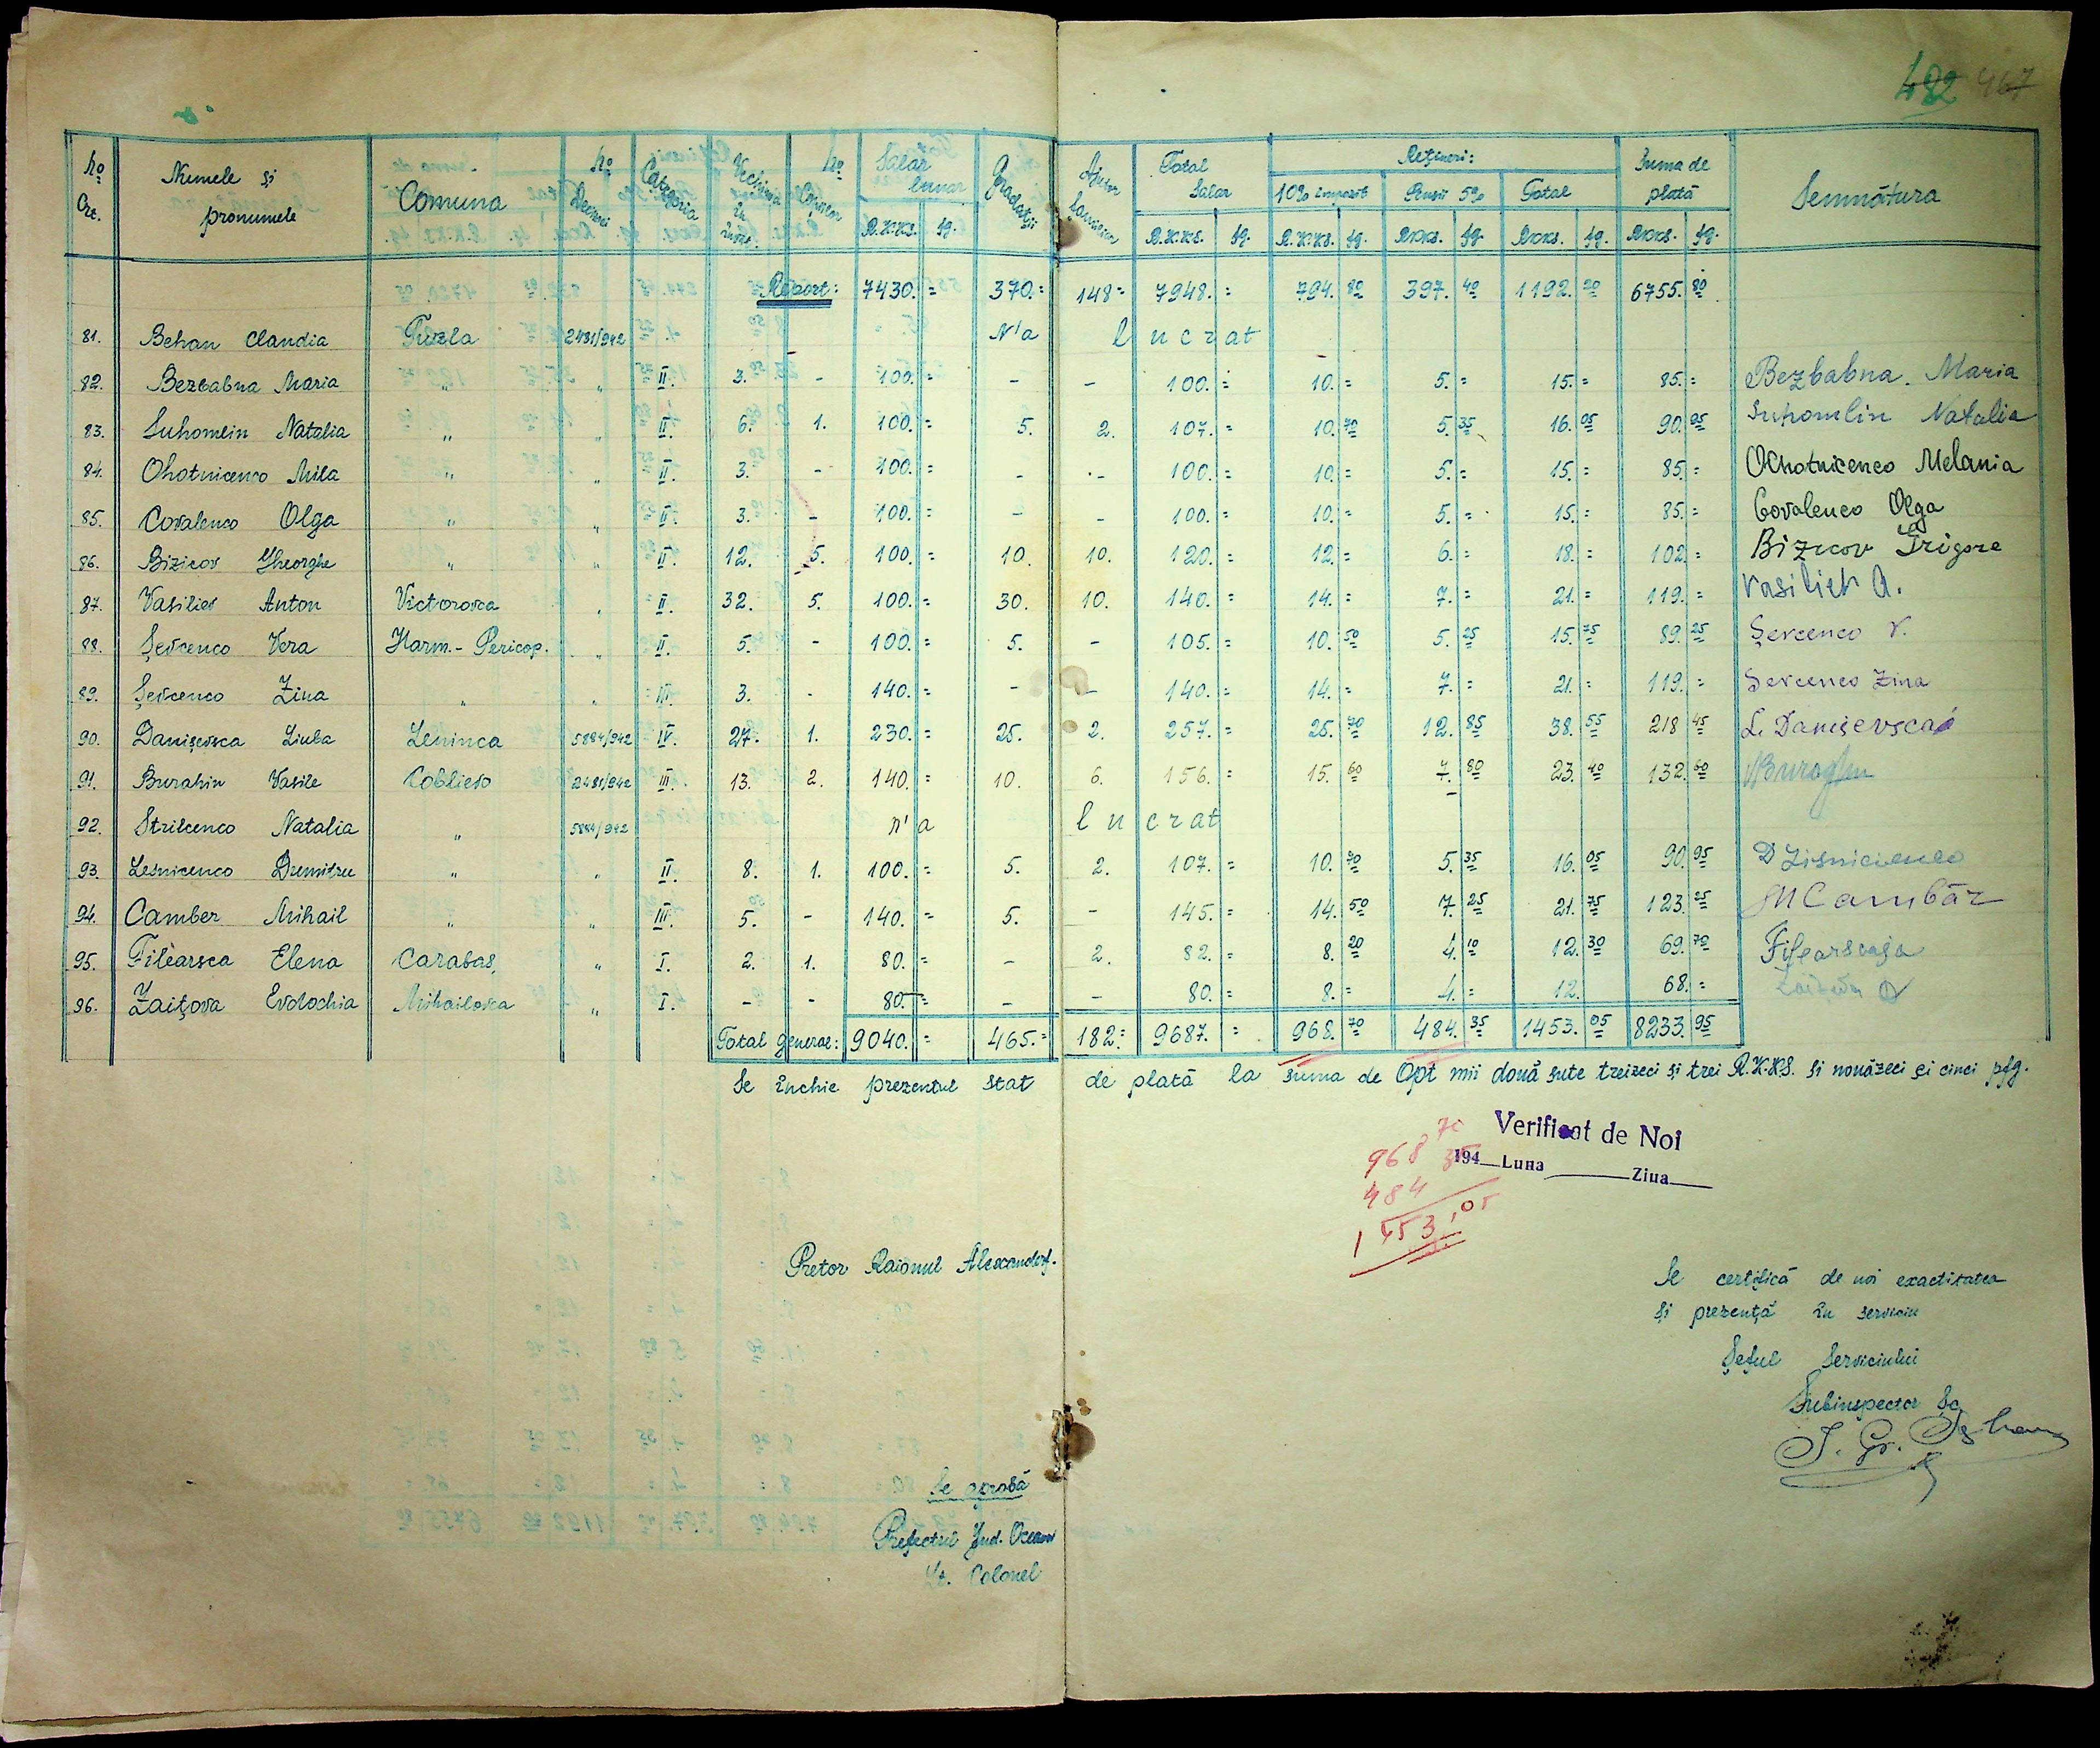 482 467
No Crt. Numele și pronumele Comuna No Decimei Categoria Vechimea în înv. No Copiilor Salar lunar Gradații Ajutor familiar Total Salar Rețineri: Suma de plată Semnătura
10% impozit Rusii 5% Total
R.K.KS. fg. R.K.KS. fg. R.K.KS. fg. RKKS. fg. RKKS. fg. RKKS. fg.
Report: 7430.= 370.= 148= 7948.= 794.80 397.40 1192.20 6755.80
81. Behan Claudia Tuzla 2431/942 N'a lucrat
82. Bezbabna Maria " " II. 3. - 100.= - - 100.= 10.= 5.= 15.= 85.= Bezbabna. Maria
83. Suhomlin Natalia " " II. 6. 1. 100.= 5. 2. 107.= 10.70 5.35 16.05 90.95 Suhomlin Natalia
84. Ohotnicenco Mila " " II. 3. - 100.= - - 100.= 10.= 5.= 15.= 85.= Ochotnicenco Melania
85. Covalenco Olga " " II. 3. - 100.= - - 100.= 10.= 5.= 15.= 85.= Covalenco Olga
86. Bizicov Gheorghe " " II. 12. 5. 100.= 10. 10. 120.= 12.= 6.= 18.= 102.= Bizicov Grigore
87. Vasiliev Anton Victorovca " II. 32. 5. 100.= 30. 10. 140.= 14.= 7.= 21.= 119.= Vasiliev A.
88. Șevcenco Vera Harm.- Pericop. " II. 5. - 100.= 5. - 105.= 10.50 5.25 15.75 89.25 Șevcenco V.
89. Șevcenco Zina " " III. 3. - 140.= - - 140.= 14.= 7.= 21.= 119.= Șevcenco Zina
90. Danișevsca Liuba Leninca 5884/942 IV. 27. 1. 230.= 25. 2. 257.= 25.70 12.85 38.55 218 45 L. Danișevscai
91. Burahin Vasile Coblievo 2431/942 III. 13. 2. 140.= 10. 6. 156.= 15.60 7.80 23.40 132.60
92. Strilcenco Natalia " 5884/942 n'a lucrat
93. Lesnicenco Dumitru " " II. 8. 1. 100.= 5. 2. 107.= 10.70 5.35 16.05 90.95 D Lisnicienco
94. Camber Mihail " " III. 5. - 140.= 5. - 145.= 14.50 7.25 21.75 123.25 M Cambăr
95. Filearsca Elena Carabas, " I. 2. 1. 80.= - 2. 82.= 8.20 4.10 12.30 69.70 Filearscaja
96. Zaițova Evdochia Mihailovca " I. - - 80.= - - 80.= 8.= 4.= 12. 68.=
Total general: 9040.= 465.= 182.= 9687.= 968.70 484.35 1453.05 8233 95
Se închie prezentul stat de plată la suma de Opt mii două sute treizeci și trei R.K.KS. și nouăzeci și cinci pfg.
Verificat de Noi
194 Luna Ziua
968 70
484 35
1453,05
Pretor Raionul Alexandorf.
Se certifică de noi exactitatea
și prezență în serviciu
Șeful Serviciului
Subinspector Șc.
Se aprobă
Prefectul Jud. Oceacov
Lt. Colonel